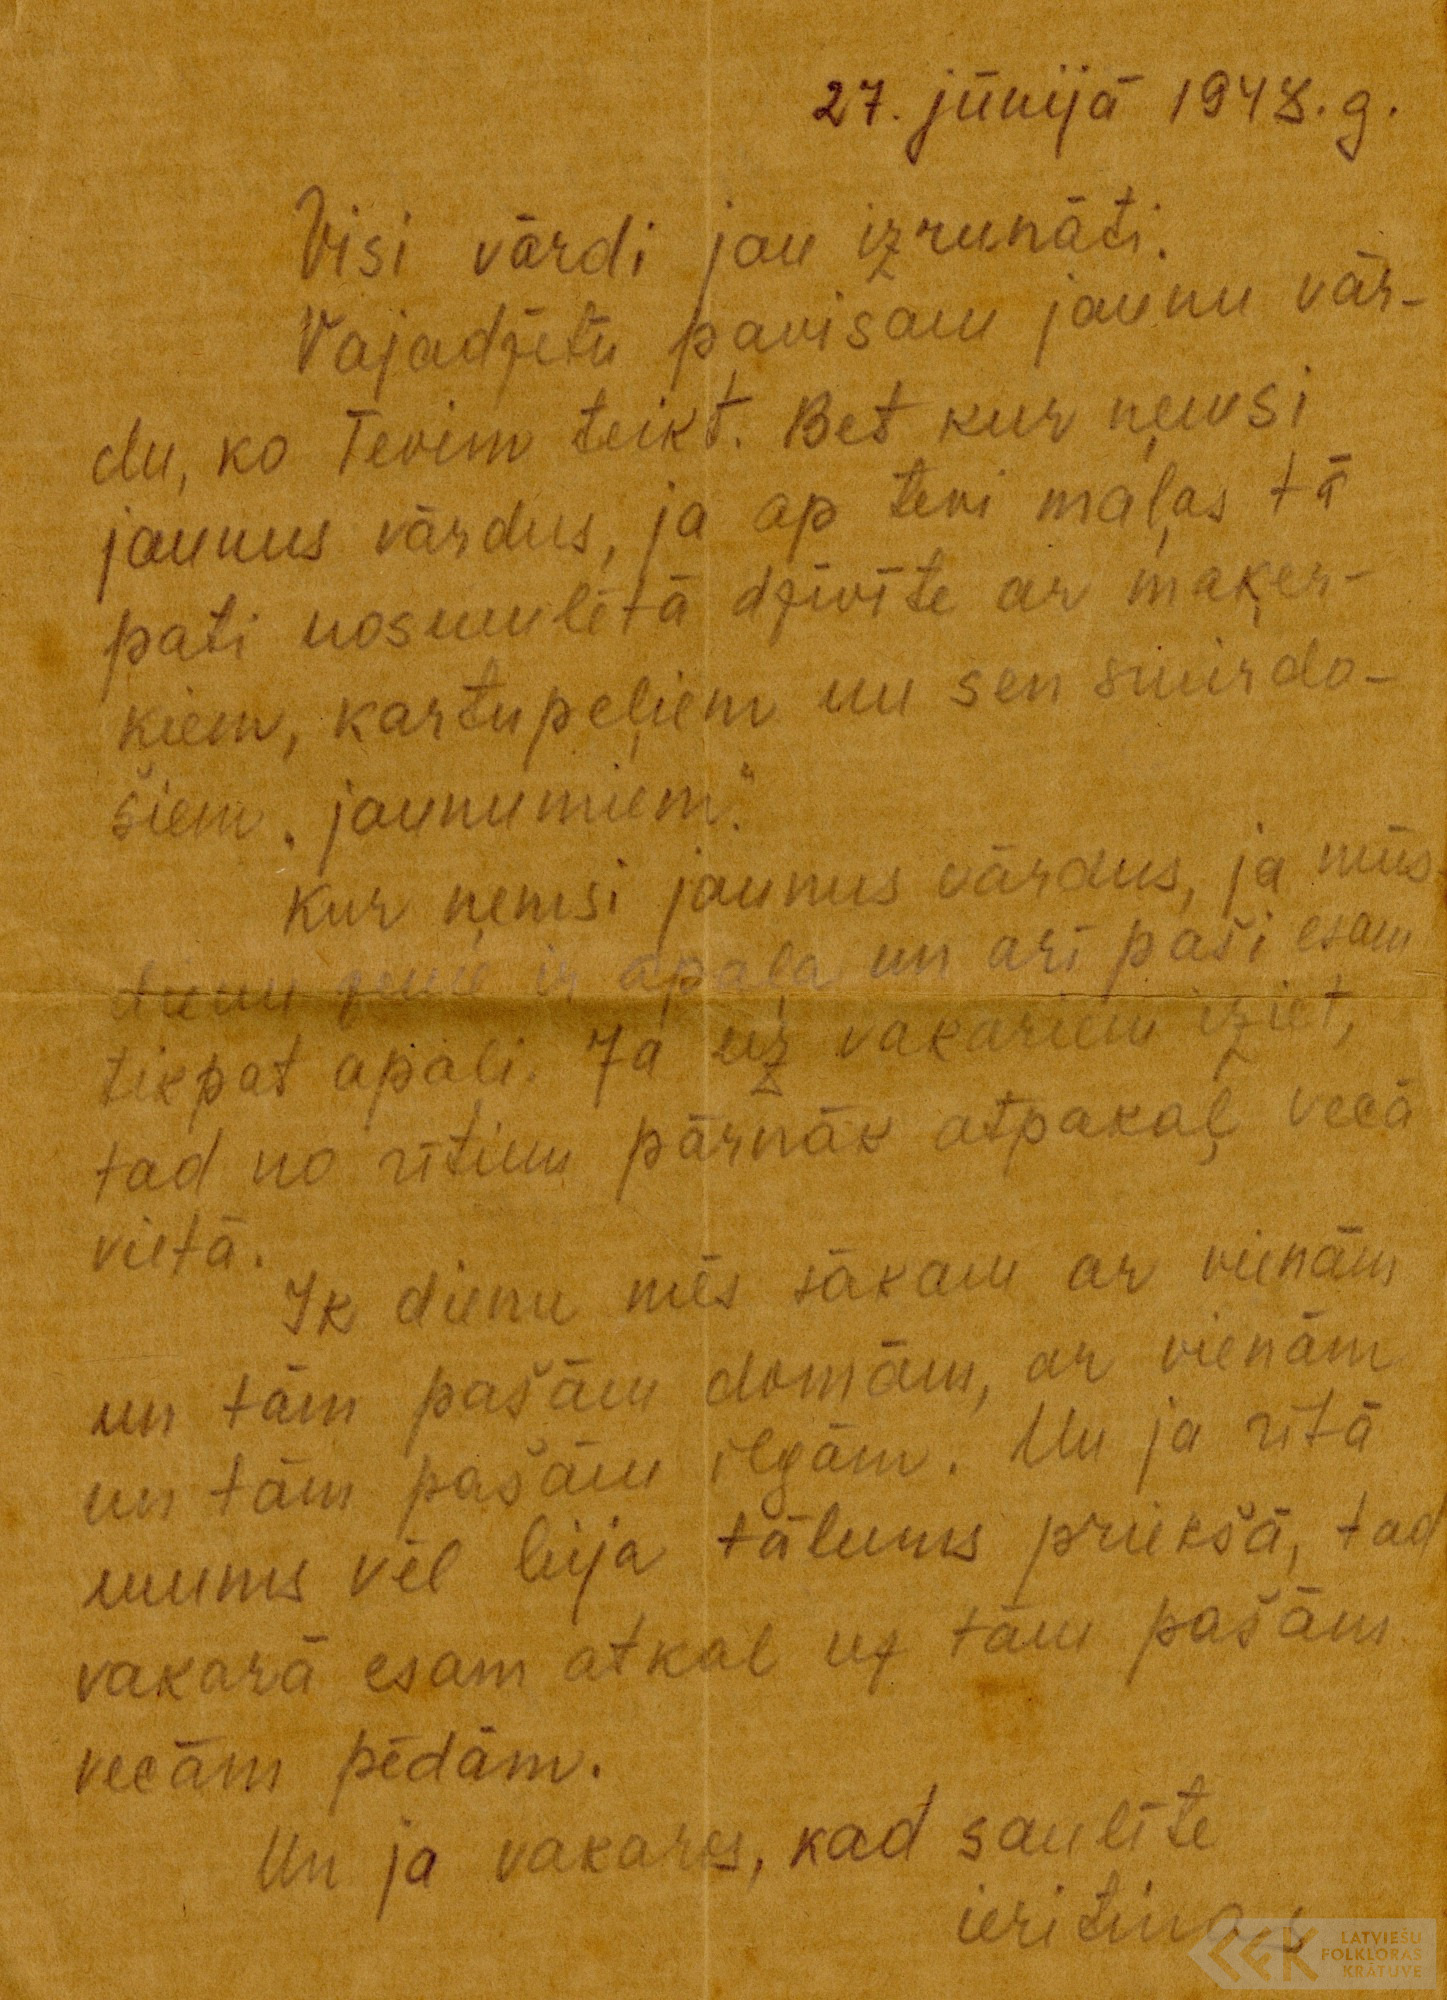 27. jūnijā 1948. g.
Visi vārdi jau izrunāti.
Vajadzētu pavisam jaunu vār-
du, ko Tevim teikt. Bet kur ņemsi
jaunus vārdus, ja ap tevi maļas tā
pati nosmulētā dzīvīte ar maķer-
ķiem, kartupeļiem un sen smirdo-
šiem „jaunumiem."
Kur ņemsi jaunus vārdus, ja mūs
dienu zeme ir apaļa un arī paši esam
tikpat apaļi. Ja uz vakariem iziet,
tad no rītiem pārnāk atpakaļ vecā
vietā.
Ik dienu mēs sākam ar vienām
un tām pašām domām, ar vienām
un tām pašām ilgām. Un ja rītā
mums vēl bija tālums priekšā, tad
vakarā esam atkal uz tām pašām
vecām pēdām.
Un ja vakaros, kad saulīte
LATVIEŠU
FOLKLORAS
KRĀTUVE